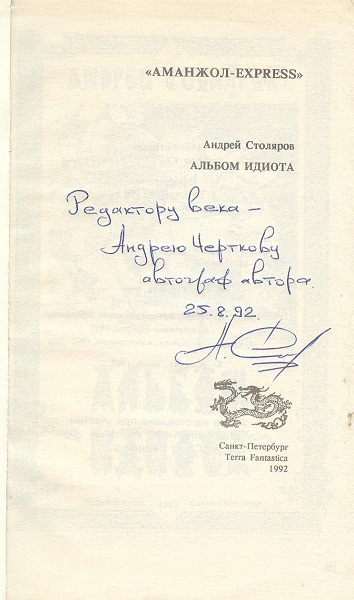 «АМАНЖОЛ-EXPRESS»
Андрей Столяров
АЛЬБОМ ИДИОТА
Редактору века –
Андрею Черткову
автограф автора.
25.8.92
Санкт-Петербург
Terra Fantastica
1992